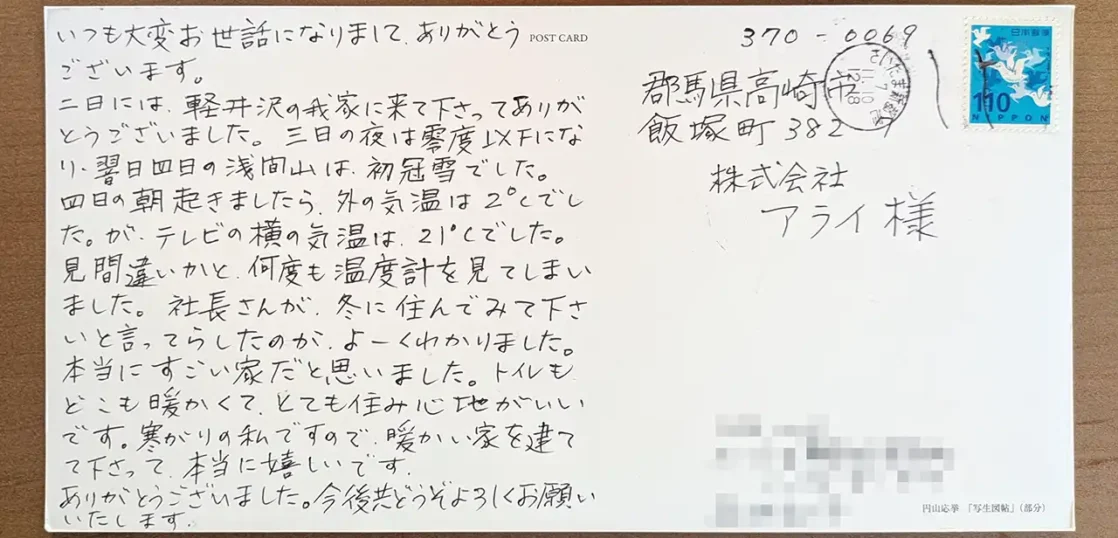 いつも大変お世話になりまして、ありがとう
ございます。
二日には、軽井沢の我家に来て下さってありが
とうございました。三日の夜は零度以下にな
り、翌日四日の浅間山は、初冠雪でした。
四日の朝起きましたら、外の気温は2℃でし
た。が、テレビの横の気温は、21℃でした。
見間違いかと、何度も温度計を見てしまい
ました。社長さんが、冬に住んでみて下さ
いと言ってらしたのが、よーくわかりました。
本当にすごい家だと思いました。トイレも
どこも暖かくて、とても住み心地がいい
です。寒がりの私ですので、暖かい家を建て
て下さって、本当に嬉しいです。
ありがとうございました。今後共どうぞよろしくお願い
いたします。
POST CARD
370-0069
群馬県高崎市
飯塚町382
株式会社
アライ様
さいたま新都心
7.11.10
12-18
日本郵便
110
NIPPON
円山応挙 「写生図帖」(部分)